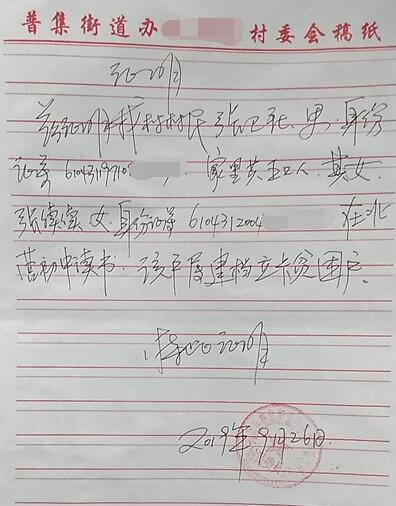 普集街道办村委会稿纸
证明
兹证明我村村民张卫, 男. 身份
证号 610431197108, 家里共五口人. 其女.
张倩 女. 身份证号 6104312004 在北
营初中读书. 该户属建档立卡贫困户.
特此证明
2019年9月26日.